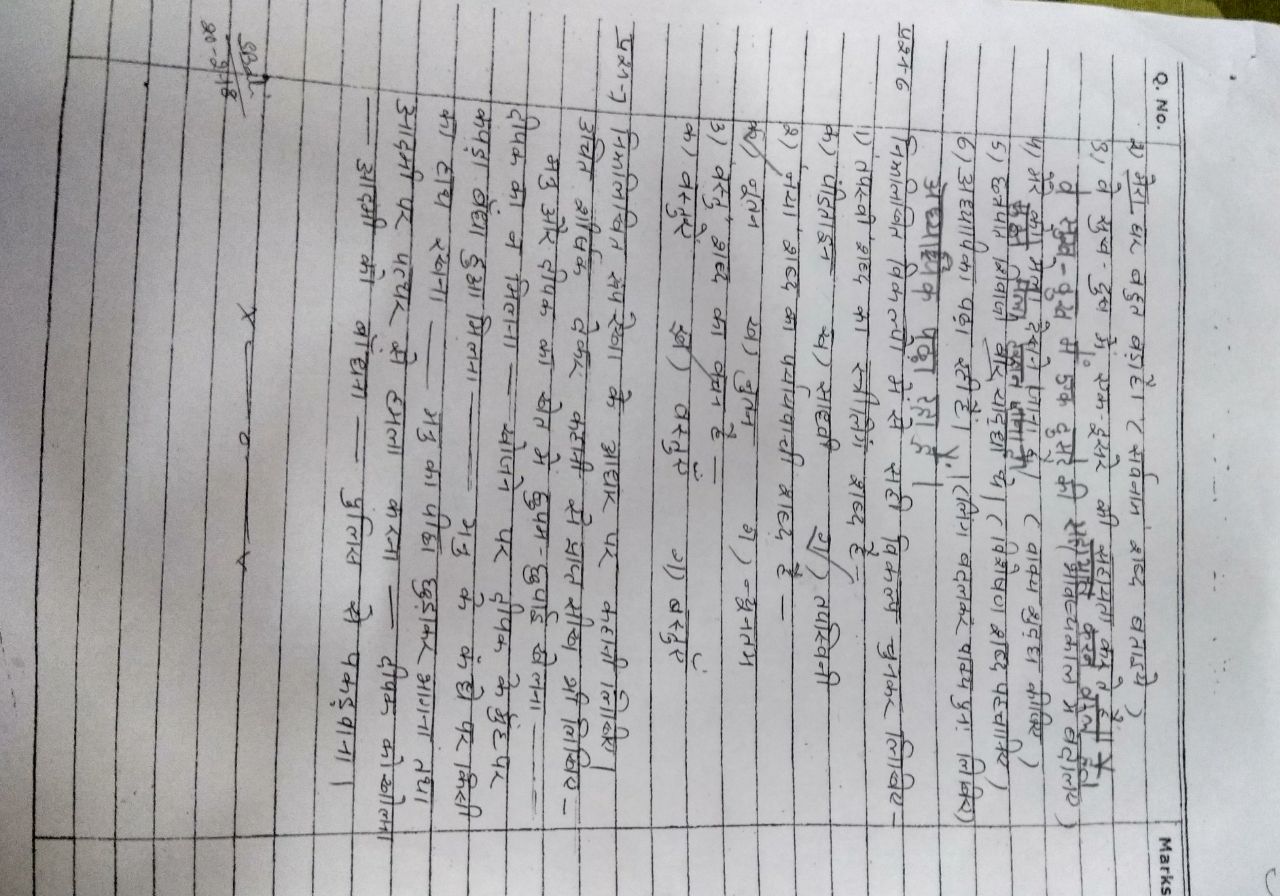 Q. No.
Marks
2) मेरा घर बहुत बड़ा है। (सर्वनाम शब्द बताइये)
3) वे सुख-दुख में एक दूसरे की सहायता करते हैं।
वे सुख-दुख में एक दूसरे की
भविष्यकाल में बदलिए)
4) मेरे को मेला देखने जाना है। (वाक्य शुद्ध कीजिए)
5) छत्रपति शिवाजी वीर योद्धा थे। (विशेषण शब्द पहचानिए)
6) अध्यापिका पढ़ा रही है। (लिंग बदलकर वाक्य पुनः लिखिए)
अध्यापक पढ़ा रहा है।
प्रश्न-6 निम्नलिखित विकल्पों में से सही विकल्प चुनकर लिखिए -
1) 'तपस्वी' शब्द का स्त्रीलिंग शब्द है -
क) पंडिताइन ख) साहसी ग) तपस्विनी
2) 'नया' शब्द का पर्यायवाची शब्द है -
क) नूतन ख) नुतन ग) न्यूनतम
3) 'वस्तु' शब्द का वचन है -
क) वस्तुएे ख) वस्तुएँ ग) वस्तुए
प्रश्न-7 निम्नलिखित रूपरेखा के आधार पर कहानी लिखिए।
उचित शीर्षक देकर कहानी से प्राप्त सीख भी लिखिए -
मधु और दीपक का खेत में छुपम-छुपाई खेलना ——
दीपक का न मिलना —— खोजने पर दीपक के मुंह पर
कपड़ा बंधा हुआ मिलना —— मधु के कंधे पर किसी
का हाथ रखना —— मधु का पीछा छुड़ाकर भागना तथा
आदमी पर पत्थर से हमला करना —— दीपक को खोलना
—— आदमी को बाँधना —— पुलिस से पकड़वाना।
x —— o —— x